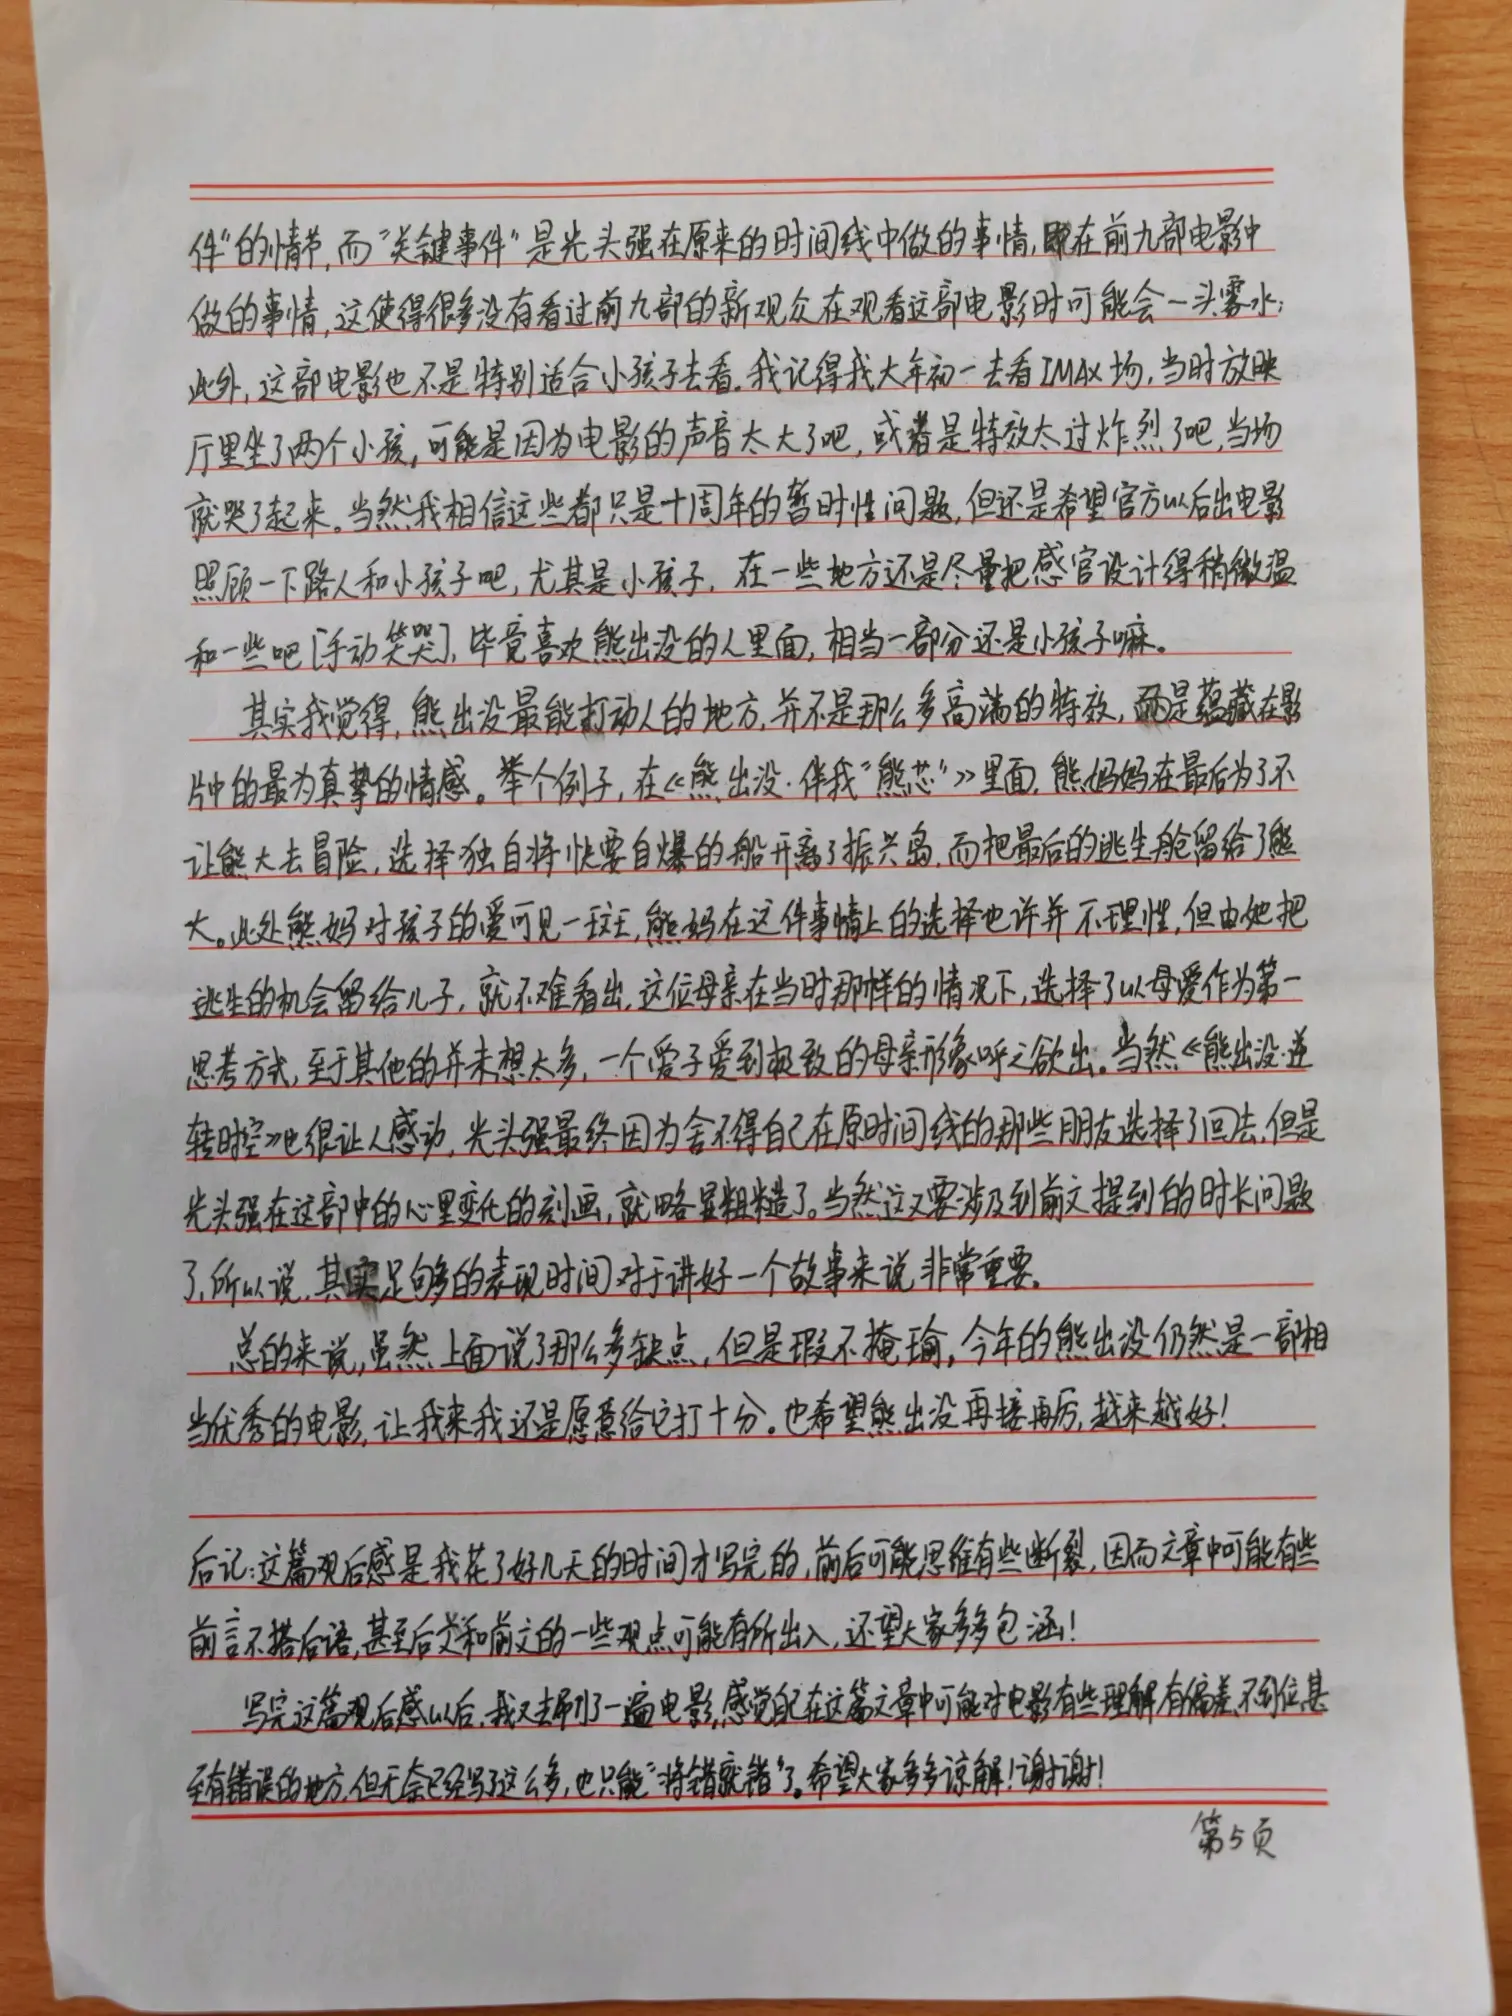 件”的情节,而“关键事件”是光头强在原来的时间线中做的事情,即在前九部电影中
做的事情,这使得很多没有看过前九部的新观众在观看这部电影时可能会一头雾水;
此外,这部电影也不是特别适合小孩子去看。我记得我大年初一去看IMAX场,当时放映
厅里坐了两个小孩,可能是因为电影的声音太大了吧,或者是特效太过炸烈了吧,当场
就哭了起来。当然我相信这些都只是十周年的暂时性问题,但还是希望官方以后出电影
照顾一下路人和小孩子吧,尤其是小孩子,在一些地方还是尽量把感官设计得稍微温
和一些吧[手动笑哭],毕竟喜欢熊出没的人里面,相当一部分还是小孩子嘛。
其实我觉得,熊出没最能打动人的地方,并不是那么多高端的特效,而是蕴藏在影
片中的最为真挚的情感。举个例子,在《熊出没·伴我“熊芯”》里面,熊妈妈在最后为了不
让熊大去冒险,选择独自将快要自爆的船开离了振兴岛,而把最后的逃生舱留给了熊
大。此处熊妈对孩子的爱可见一斑,熊妈在这件事情上的选择也许并不理性,但由她把
逃生的机会留给儿子,就不难看出,这位母亲在当时那样的情况下,选择了以母爱作为第一
思考方式,至于其他的并未想太多,一个爱子爱到极致的母亲形象呼之欲出。当然《熊出没·逆
转时空》也很让人感动,光头强最终因为舍不得自己在原时间线的那些朋友选择了回去,但是
光头强在这部中的心里变化的刻画,就略显粗糙了。当然这又要涉及到前文提到的时长问题
了,所以说,其实足够多的表现时间对于讲好一个故事来说非常重要。
总的来说,虽然上面说了那么多缺点,但是瑕不掩瑜,今年的熊出没仍然是一部相
当优秀的电影,让我来我还是愿意给它打十分。也希望熊出没再接再厉,越来越好!
后记:这篇观后感是我花了好几天的时间才写完的,前后可能思维有些断裂,因而文章中可能有些
前言不搭后语,甚至后文和前文的一些观点可能有所出入,还望大家多多包涵!
写完这篇观后感以后,我又去刷了一遍电影,感觉自己在这篇文章中可能对电影有些理解有偏差、不到位甚
至有错误的地方,但无奈已经写了这么多,也只能“将错就错”了。希望大家多多谅解!谢谢!
第5页